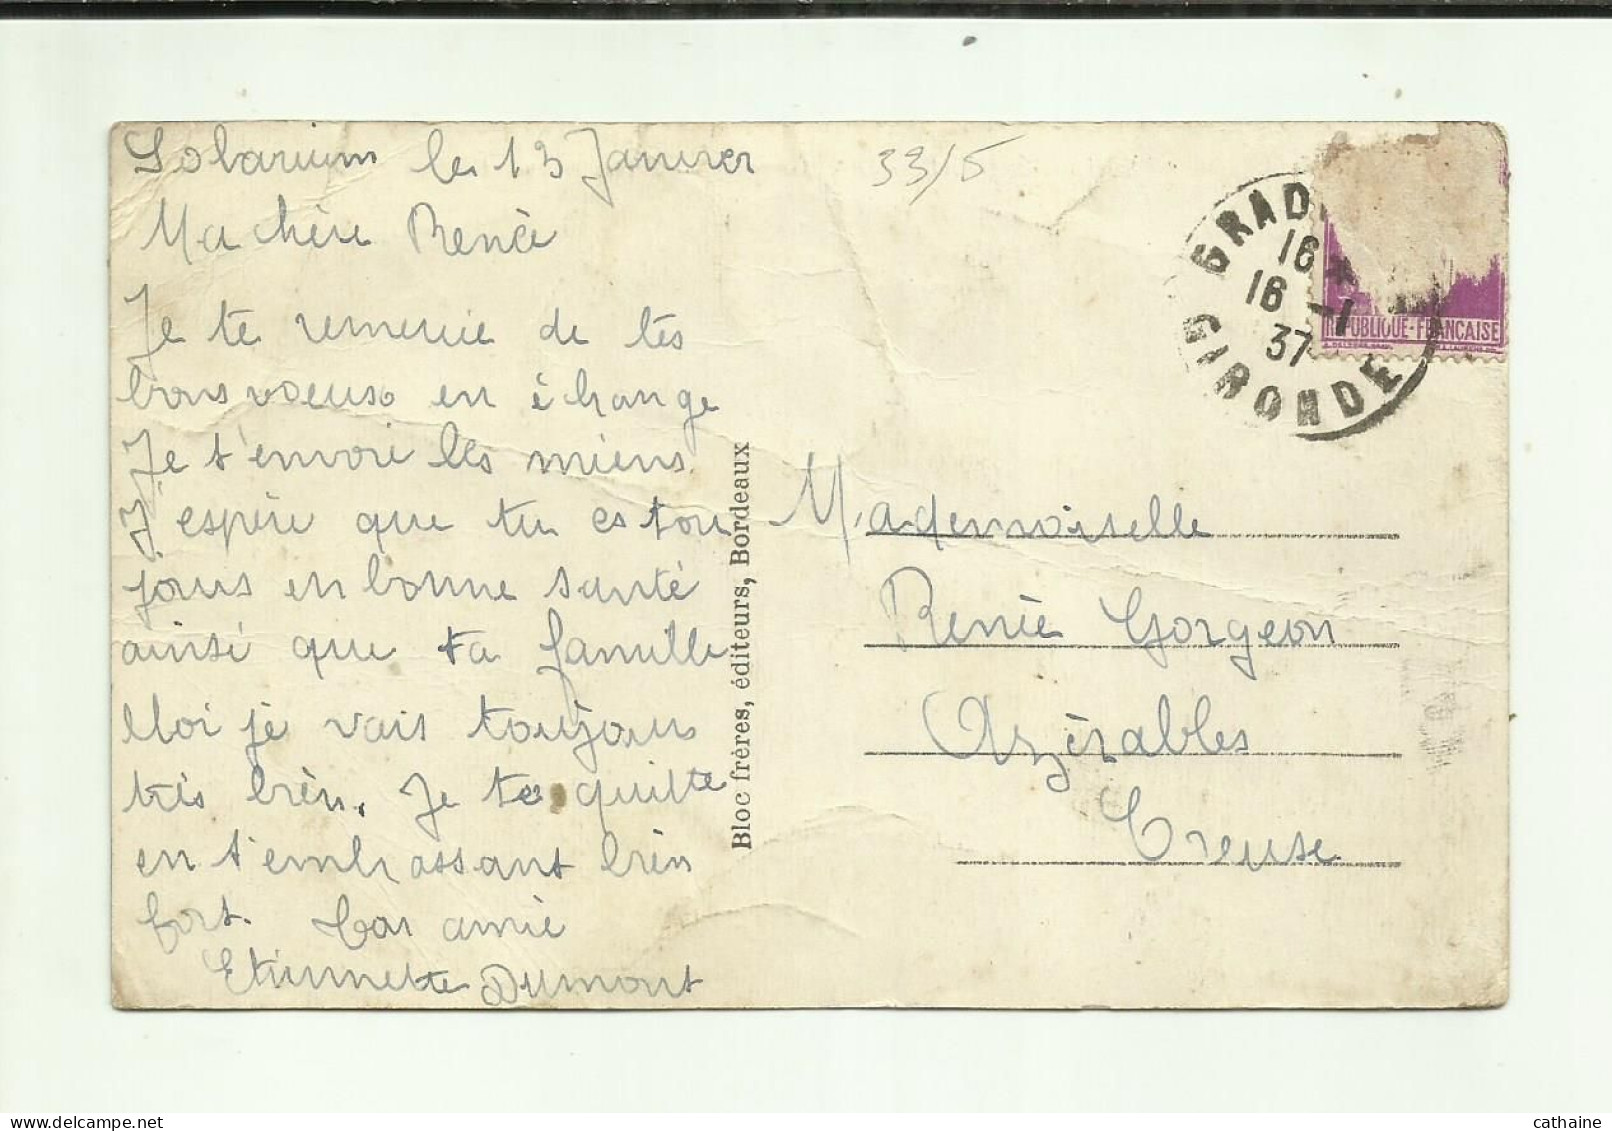 Solarium le 13 Janvier
Ma chère Renée
Je te remercie de tes
bons voeuse en échange
Je t'envoie lles miens.
J'espère que tu es tou
jours en bonne santé
ainsi que ta famille
Moi je vais toujours
très bien. Je te quitte
en t'embrassant bien
fort. amie
Etiennette Dumont
Bloc frères, éditeurs, Bordeaux
33/5
GRAD
16 *
16 -1
37
GIRONDE
REPUBLIQUE-FRANCAISE
Mademoiselle
Renée Gorgeon
Azérables
Creuse
cathaine